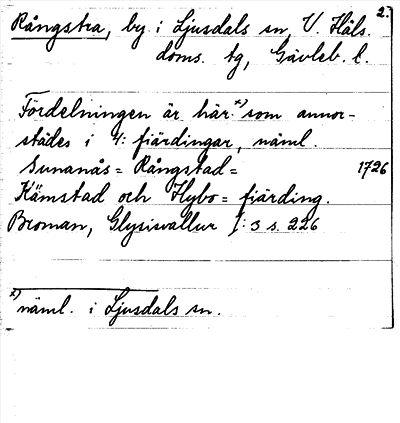 2.
Rångstra, by i Ljusdals sn, V. Häls.
doms. tg, Gävleb. l.
Fördelningen är här x) som annor-
städes i 4: fiärdingar, näml.
Sunanås= Rångstad= 1726
Kämstad och Hybo= fiärding.
Broman, Glysisvallur I: 3 s. 226
x) näml. i Ljusdals sn.